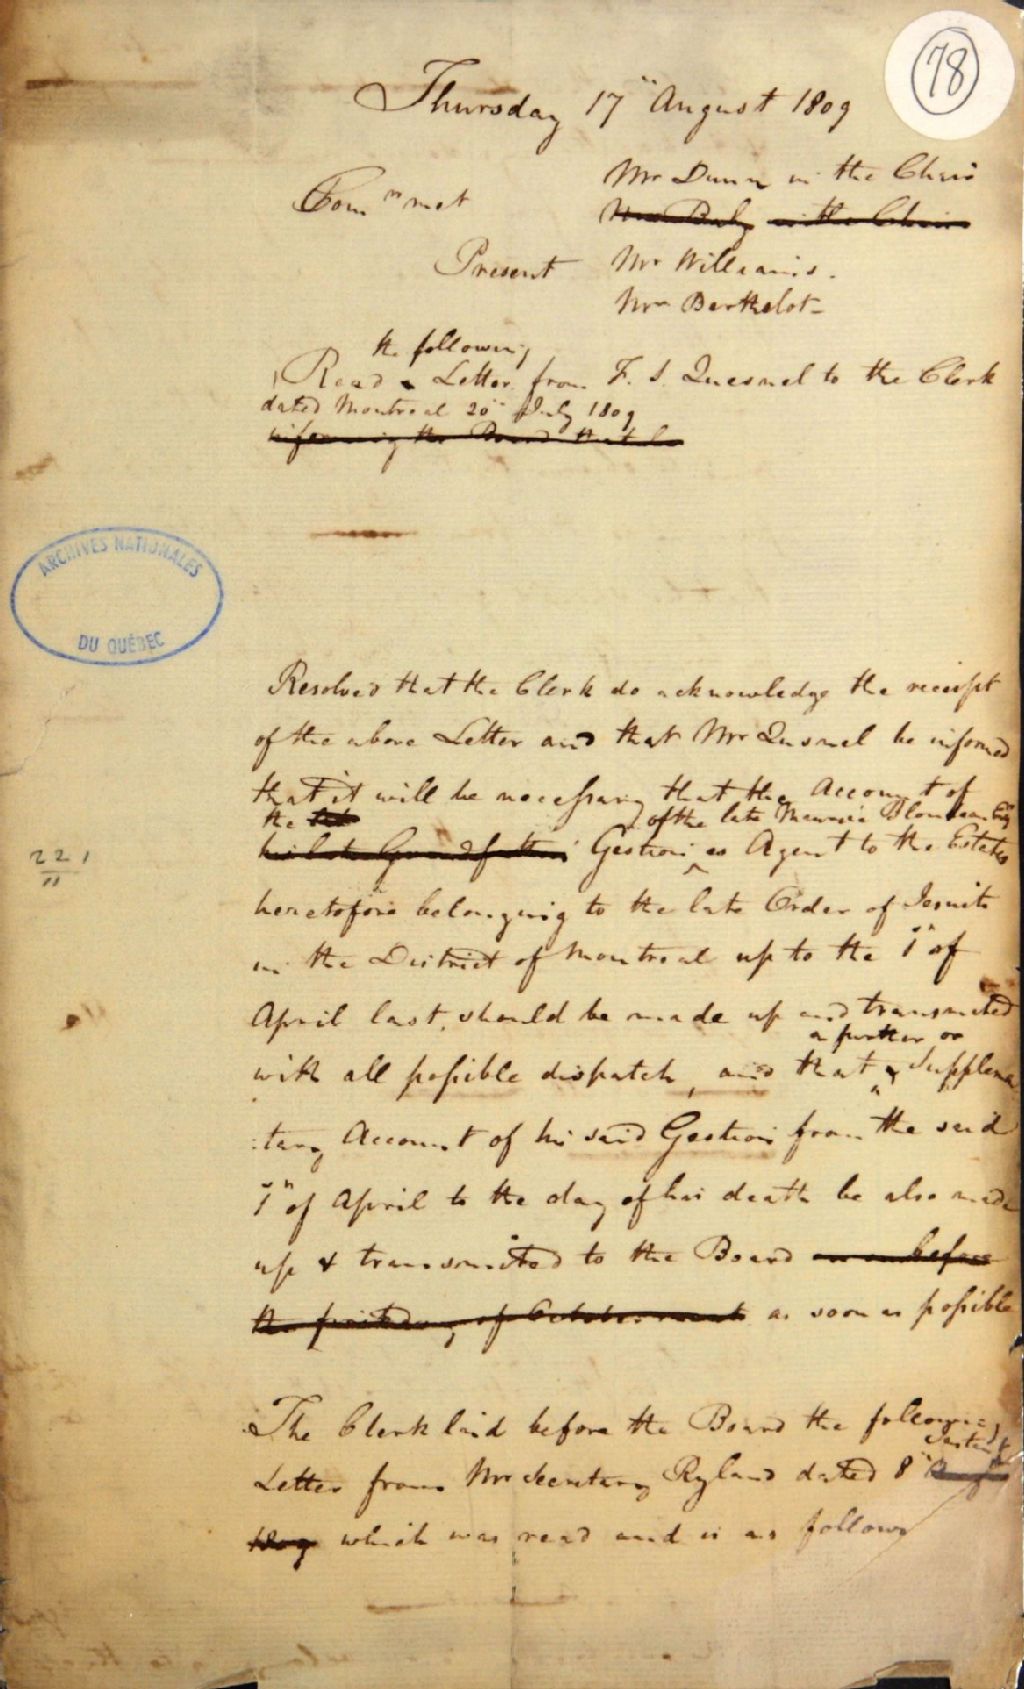 78
Thursday 17" August 1809
Mr Dunn in the Chair
Com.n met
Mr Baby in the Chair
Present Mr Williams.
Mr Berthelot
the following
Read a Letter from F. S. Quesnel to the Clerk
dated Montreal 20" July 1809
informing the Board that he
ARCHIVES NATIONALES
DU QUÉBEC
Resolved that the Clerk do acknowledge the receipt
of the above Letter and that Mr Quesnel be informed
that it will be necessary that the Account of
the of the late Maurice Blondeau Esq
his late Grandfathers Gestion as Agent to the Estates
221
11
heretofore belonging to the late Order of Jesuits
in the District of Montreal up to the 1" of
April last, should be made up and transmitted
a further or
with all possible dispatch, and that a Supplemen
tary Account of his said Gestion from the said
1" of April to the day of his death be also made
up & transmitted to the Board on or before
the first day of October next as soon as possible
The Clerk laid before the Board the following
Instant
Letter from Mr Secretary Ryland dated 8" August
1809 which was read and is as follows